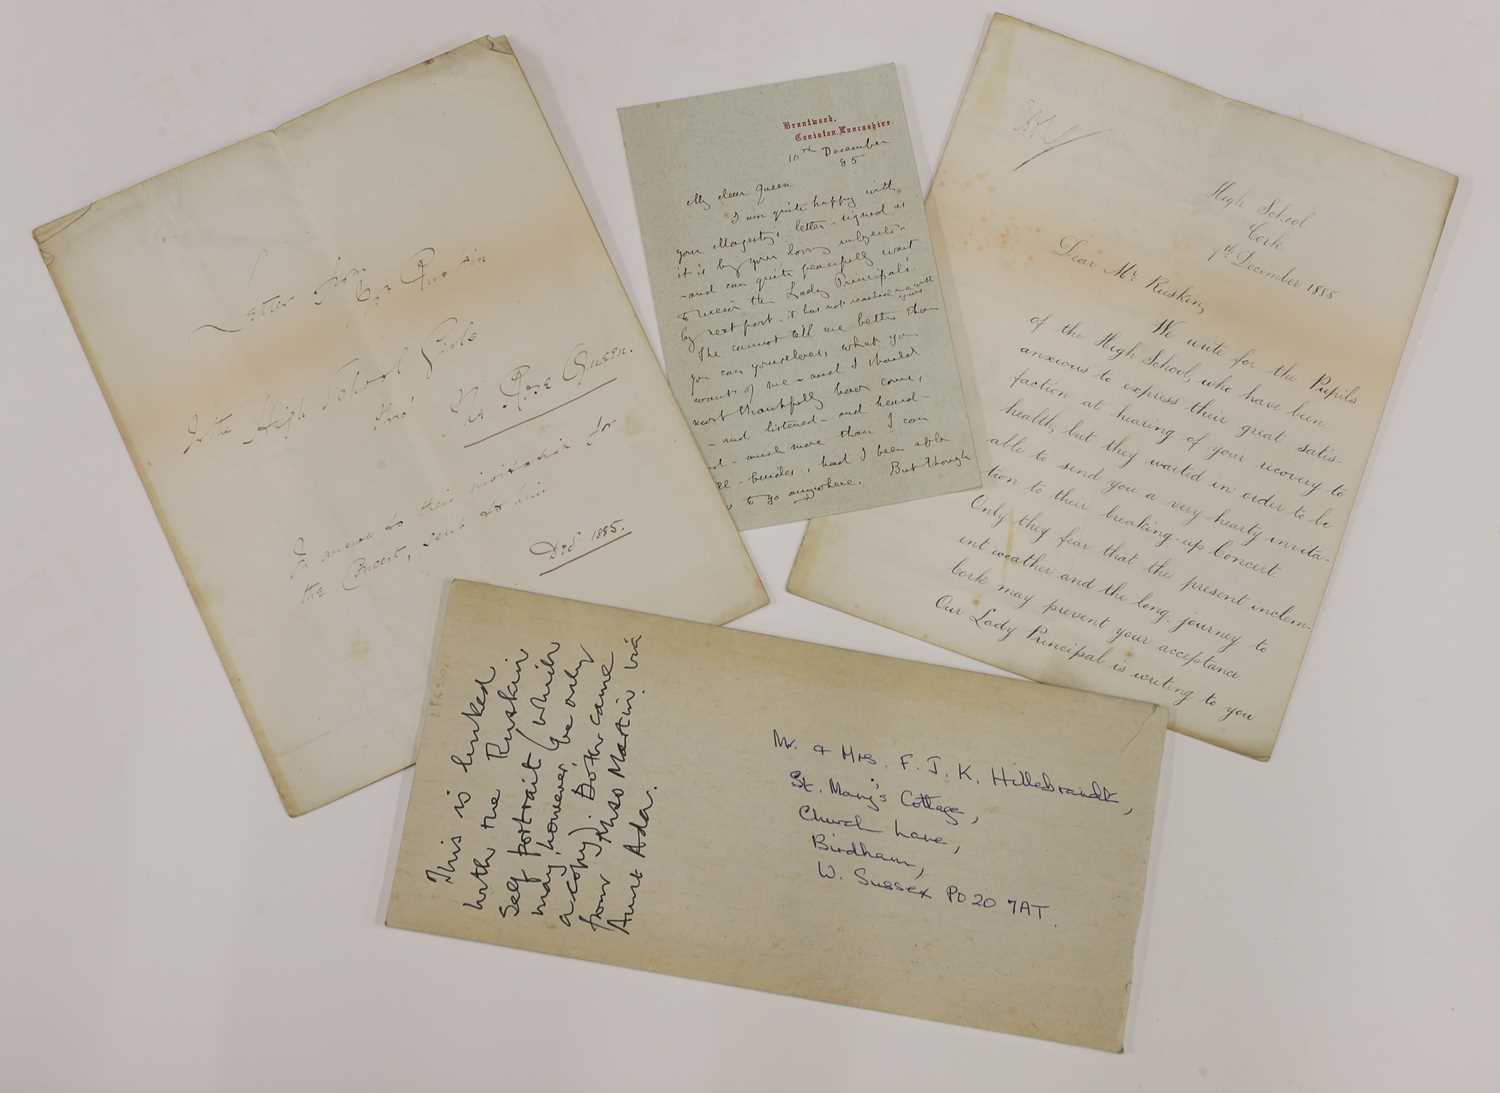 Letter from
Mr Ruskin
To the High School Girls
thro'
Ye Rose Queen.
In answer to their invitation for
the Concert, sent to him
Decr 1885.
Brantwood,
Coniston, Lancashire.
10th December
85
My dear Queen
I am quite happy with
your Magesty's letter - signed as
it is by your loving subjects -
- and can quite peacefully wait
to receive the Lady Principal's
by next post - it has not reached me with
yours
She cannot tell me better than
you can yourselves, what you
want of me - and I should
most thankfully have come,
- and listened - and heard -
- much more than I can
- besides, had I been able
to go anywhere. But though
High School
Cork
7th December 1885
Dear Mr Ruskin,
We write for the Pupils
of the High School, who have been
anxious to express their great satis-
faction at hearing of your recovery to
health, but they waited in order to be
able to send you a very hearty invita-
tion to their breaking-up Concert.
Only they fear that the present inclem-
ent weather and the long journey to
Cork may prevent your acceptance
Our Lady Principal is writing to you
This is linked
with the Ruskin
self portrait (which
may, however, be only
a copy). Both came
from Miss Martin via
Aunt Ada.
Mr. & Mrs. F. J. K. Hillebrandt,
St. Mary's Cottage,
Church Lane,
Birdham,
W. Sussex PO20 7AT.